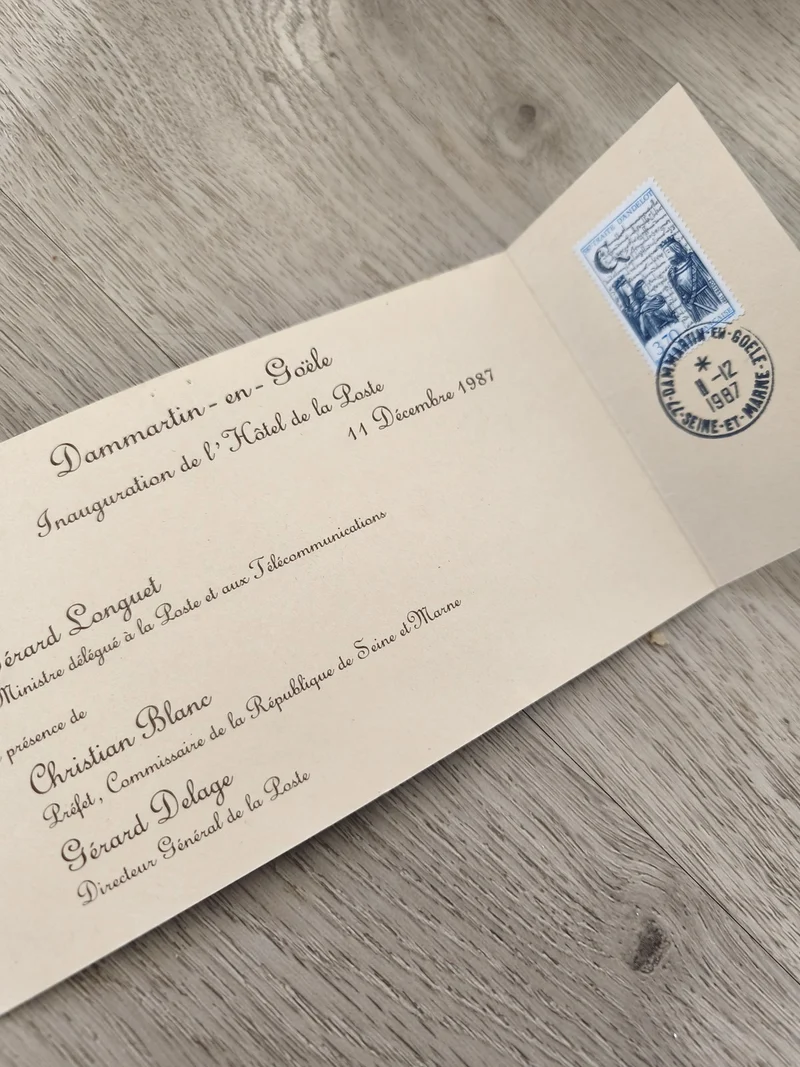 Dammartin-en-Goële
Inauguration de l'Hôtel de la Poste
11 Décembre 1987
Gérard Longuet
Ministre délégué à la Poste et aux Télécommunications
présence de
Christian Blanc
Préfet, Commissaire de la République de Seine et Marne
Gérard Delage
Directeur Général de la Poste
TRAITÉ D'ANDELOT
3,70
DAMMARTIN-EN-GOELE
*
11-12
1987
77-SEINE-ET-MARNE